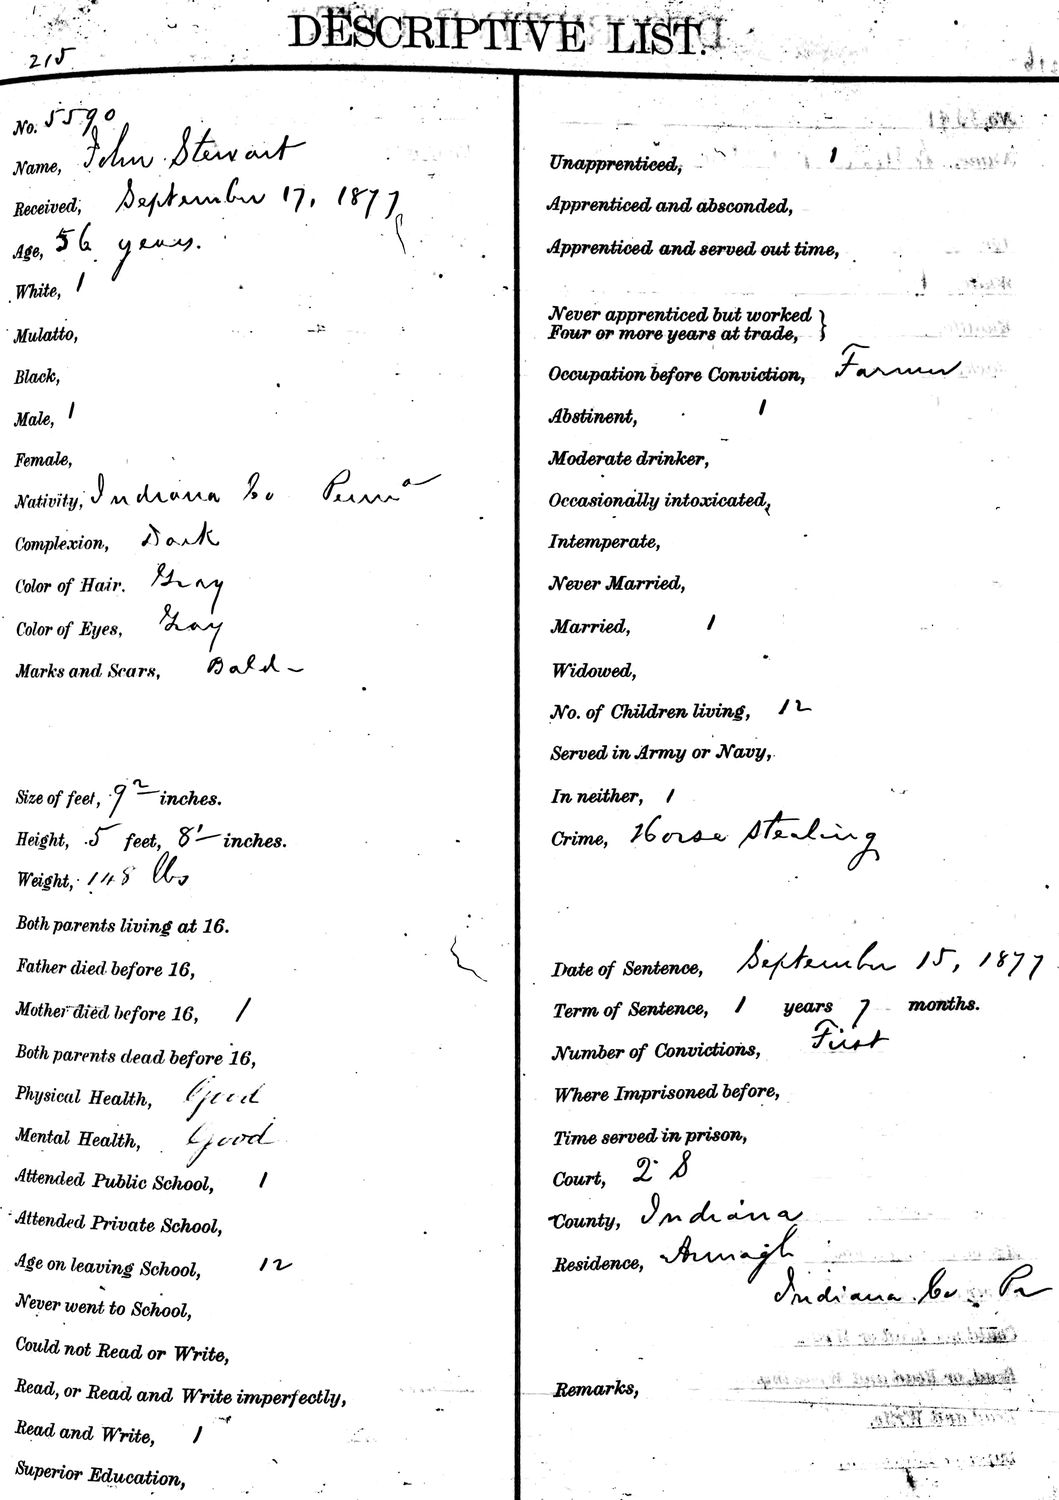 DESCRIPTIVE LIST.
215
No. 5590
Name, John Stewart
Received, September 17, 1877
Age, 56 years.
White, 1
Mulatto,
Black,
Male, 1
Female,
Nativity, Indiana Co Penna
Complexion, Dark
Color of Hair. Gray
Color of Eyes, Gray
Marks and Scars, Bald -
Size of feet, 9 2 inches.
Height, 5 feet, 8 1 inches.
Weight, 148 lbs
Both parents living at 16.
Father died before 16,
Mother died before 16, 1
Both parents dead before 16,
Physical Health, Good
Mental Health, Good
Attended Public School, 1
Attended Private School,
Age on leaving School, 12
Never went to School,
Could not Read or Write,
Read, or Read and Write imperfectly,
Read and Write, 1
Superior Education,
Unapprenticed, 1
Apprenticed and absconded,
Apprenticed and served out time,
Never apprenticed but worked }
Four or more years at trade,
Occupation before Conviction, Farmer
Abstinent, 1
Moderate drinker,
Occasionally intoxicated,
Intemperate,
Never Married,
Married, 1
Widowed,
No. of Children living, 12
Served in Army or Navy,
In neither, 1
Crime, Horse Stealing
Date of Sentence, September 15, 1877
Term of Sentence, 1 years 7 months.
Number of Convictions, First
Where Imprisoned before,
Time served in prison,
Court, 2 S
County, Indiana
Residence, Armagh
Indiana Co. Pa
Remarks,